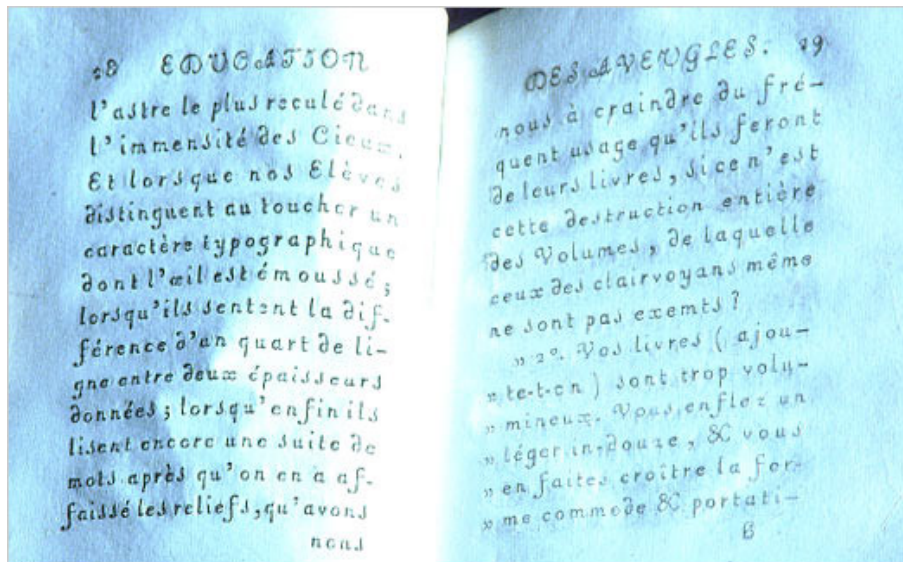 28 EDUCATION
l'astre le plus reculé dans
l'immensité des Cieux.
Et lorsque nos Elèves
distinguent au toucher un
caractère typographique
dont l'œil est émoussé ;
lorsqu'ils sentent la dif-
férence d'un quart de li-
gne entre deux épaisseurs
données ; lorsqu'enfin ils
lisent encore une suite de
mots après qu'on en a af-
faissé les reliefs, qu'avons
nous
DES AVEUGLES. 29
nous à craindre du fré-
quent usage qu'ils feront
de leurs livres, si ce n'est
cette destruction entière
des Volumes, de laquelle
ceux des clairvoyans même
ne sont pas exemts ?
» 2°. Vos livres ( ajou-
» te-t-on ) sont trop volu-
» mineux. Vous enflez un
» léger in-douze, & vous
» en faites croître la for-
» me commode & portati-
B